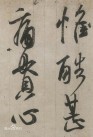 惟酷甚
痛貫心